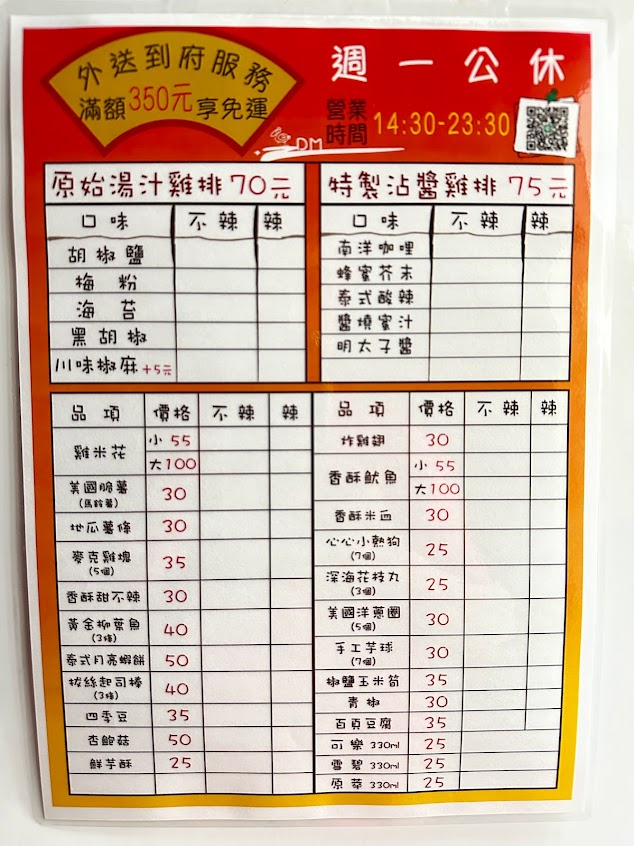 外送到府服務
滿額350元享免運
週一公休
營業時間 14:30-23:30
DM
原始湯汁雞排 70元
口味 不辣 辣
胡椒鹽
梅粉
海苔
黑胡椒
川味椒麻+5元
特製沾醬雞排 75元
口味 不辣 辣
南洋咖哩
蜂蜜芥末
泰式酸辣
醬燒蜜汁
明太子醬
品項 價格 不辣 辣
雞米花 小 55
大100
美國脆薯 30
(馬鈴薯)
地瓜薯條 30
麥克雞塊 35
(5個)
香酥甜不辣 30
黃金柳葉魚 40
(3條)
泰式月亮蝦餅 50
拔絲起司棒 40
(3條)
四季豆 35
杏鮑菇 50
鮮芋酥 25
品項 價格 不辣 辣
炸雞翅 30
香酥魷魚 小 55
大100
香酥米血 30
心心小熱狗 25
(7個)
深海花枝丸 25
(3個)
美國洋蔥圈 30
(5個)
手工芋球 30
(7個)
椒鹽玉米筍 35
青椒 30
百頁豆腐 35
可樂 330ml 25
雪碧 330ml 25
原萃 330ml 25